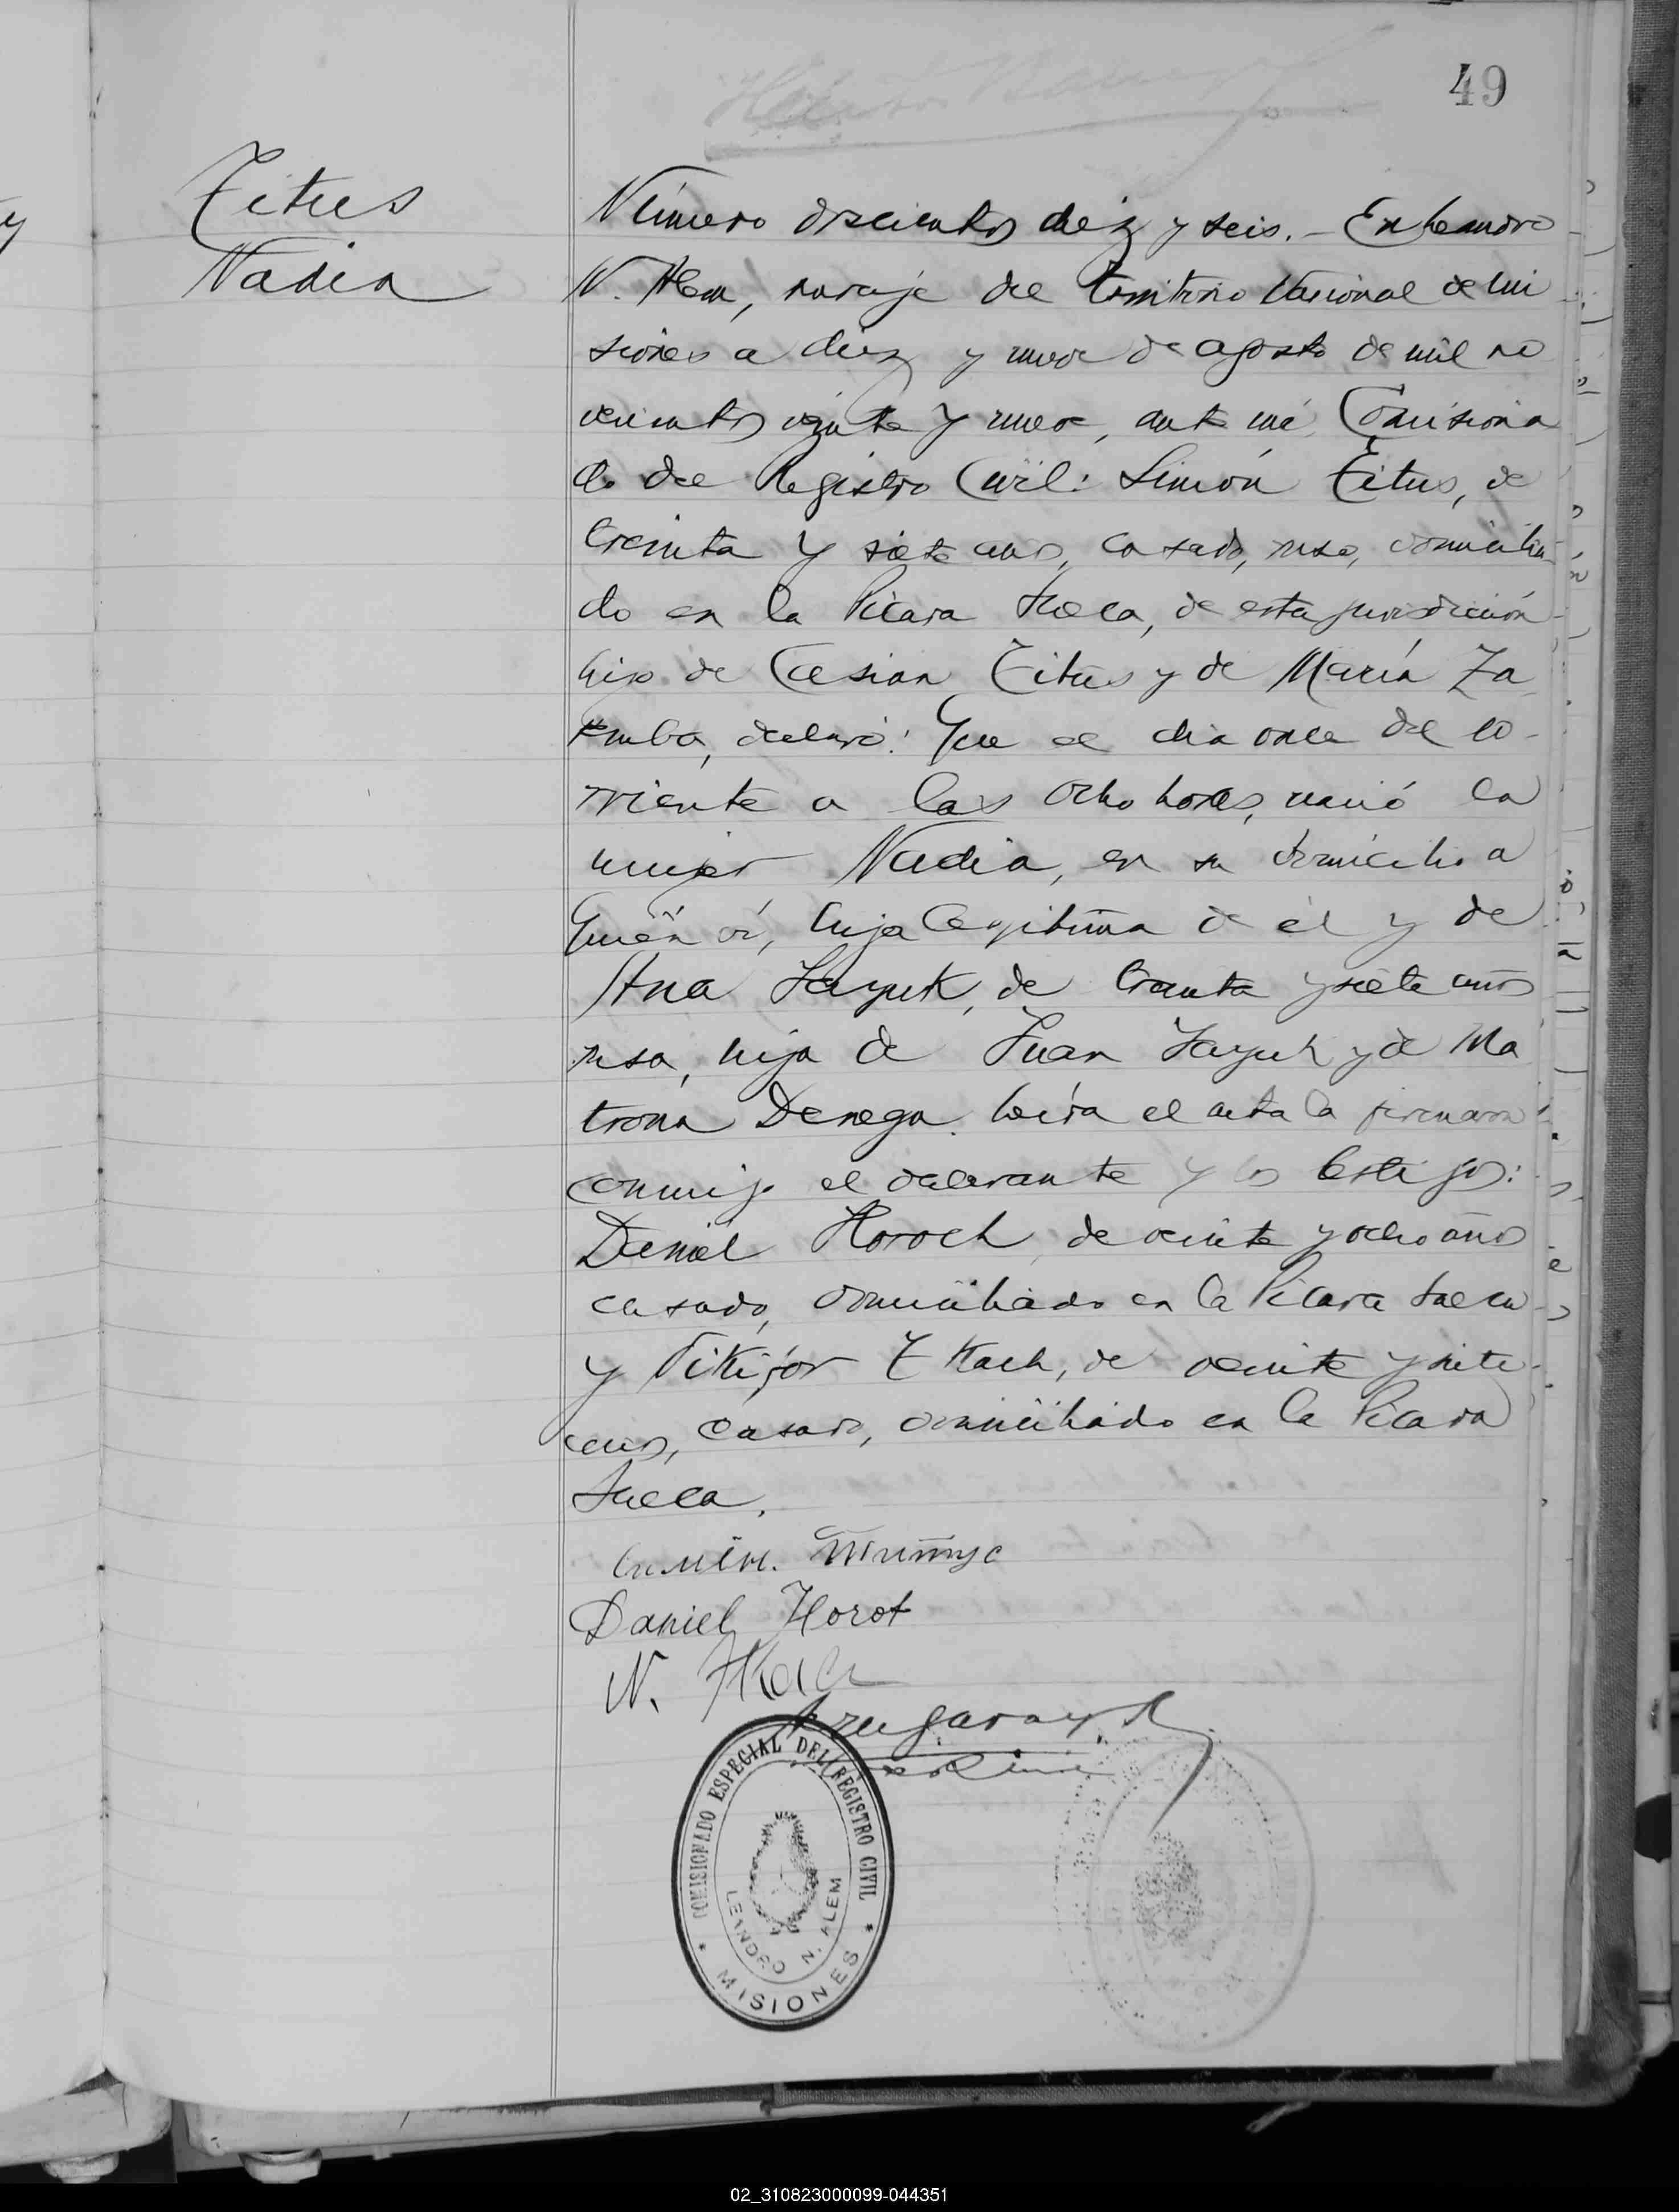 49
Titus
Nadia
Número doscientos diez y seis. - En Leandro
N. Alem, paraje del Territorio Nacional de Mi
siones a diez y nueve de agosto de mil no
vecientos veinte y nueve, ante mí Comisiona
do del Registro Civil: Simón Titus, de
treinta y siete años, casado, ruso, domicilia-
do en la Picada Sueca, de esta jurisdicción
hijo de Casian Titus y de María Za
remba, declaró: Que el dia once del co-
rriente a las ocho horas, nació la
mujer Nadia, en su domicilio a
quien vi, hija legítima de él y de
Ana Sayuk, de treinta y siete años
rusa, hija de Juan Sayuk y de Ma
trona Denega. Leída el acta la firmaron
conmigo el declarante y los testigos:
Daniel Horoch, de veinte y ocho años
casado, domiciliado en la Picada Sueca
y Nikifor Tkach, de veinte y siete
años, casado, domiciliado en la Picada
Sueca.
Daniel Horot
N. Tkach
COMISIONADO ESPECIAL DEL REGISTRO CIVIL
LEANDRO N. ALEM
* MISIONES *
02_310823000099-044351